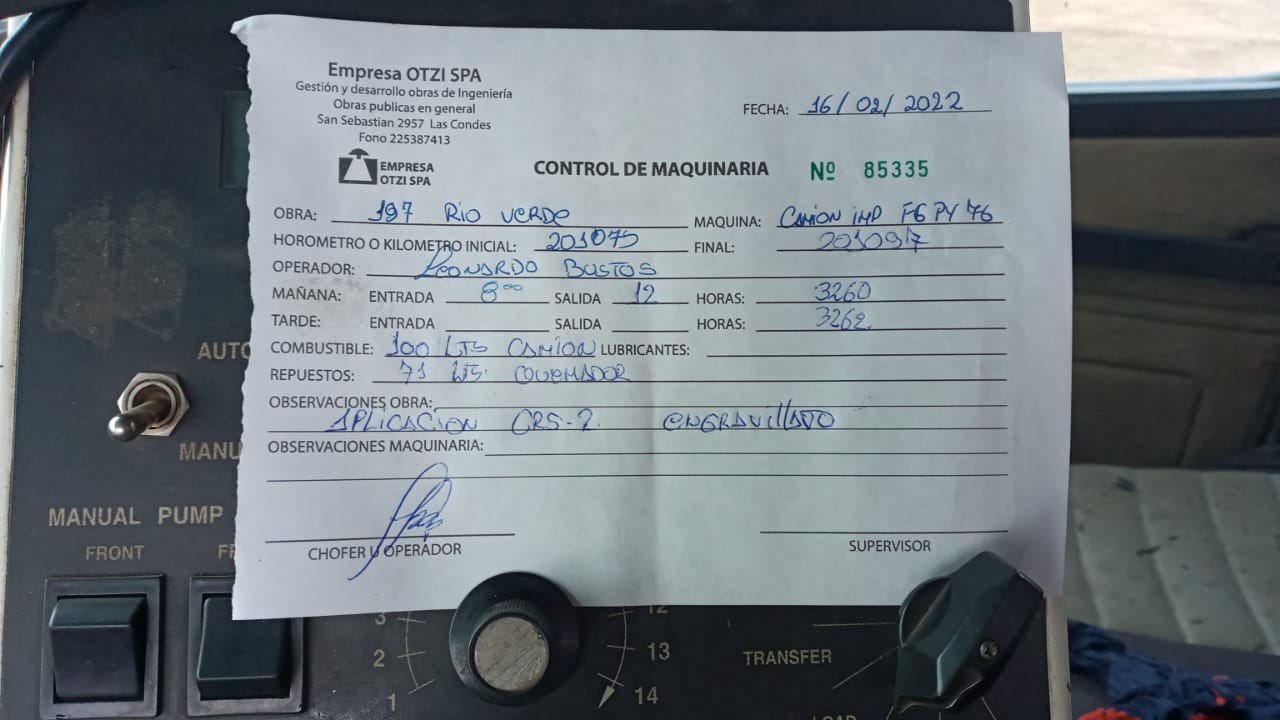 Empresa OTZI SPA
Gestión y desarrollo obras de Ingeniería
Obras publicas en general
San Sebastian 2957 Las Condes
Fono 225387413
FECHA: 16/02/2022
EMPRESA
OTZI SPA
CONTROL DE MAQUINARIA Nº 85335
OBRA: 197 Rio Verde MAQUINA: Camion imp FGPY 76
HOROMETRO O KILOMETRO INICIAL: 201075 FINAL: 201097
OPERADOR: Leonardo Bustos
MAÑANA: ENTRADA 8°° SALIDA 12 HORAS: 3260
TARDE: ENTRADA SALIDA HORAS: 3262
COMBUSTIBLE: 100 LTS Camion LUBRICANTES:
REPUESTOS: 71 LTS. Quemador
OBSERVACIONES OBRA:
Aplicacion CRS-2 engravillado
OBSERVACIONES MAQUINARIA:
CHOFER U OPERADOR
SUPERVISOR
AUTO
MANU
MANUAL PUMP
FRONT
FR
3
2
1
12
13
14
TRANSFER
LOAD